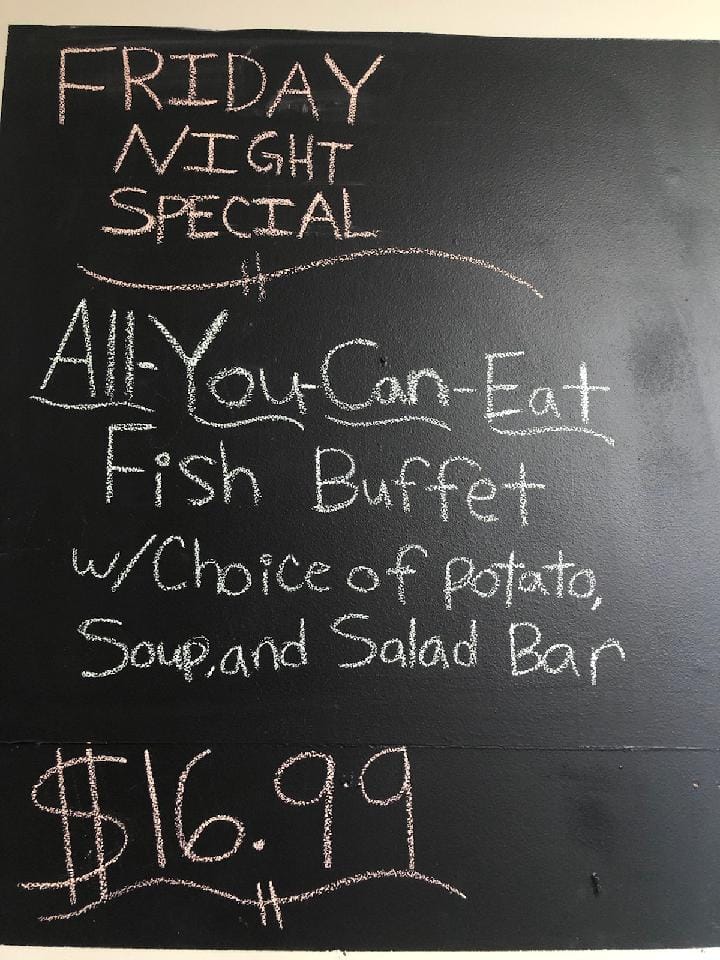 FRIDAY
NIGHT
SPECIAL
All-You-Can-Eat
Fish Buffet
w/Choice of potato,
Soup, and Salad Bar
$16.99